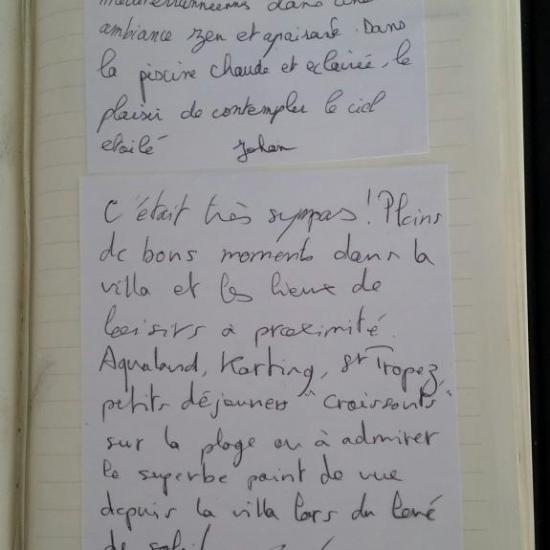 méditerranéenns dans une
ambiance zen et apaisante. Dans
la piscine chaude et eclairée, le
plaisir de contempler le ciel
etoilé Johan
C'était très sympas! Pleins
de bons moments dans la
villa et les lieux de
loisirs à proximité.
Aqualand, Karting, St Tropez,
petits déjeuners "Croissants"
sur la plage ou à admirer
le superbe point de vue
depuis la villa lors du levé
de soleil